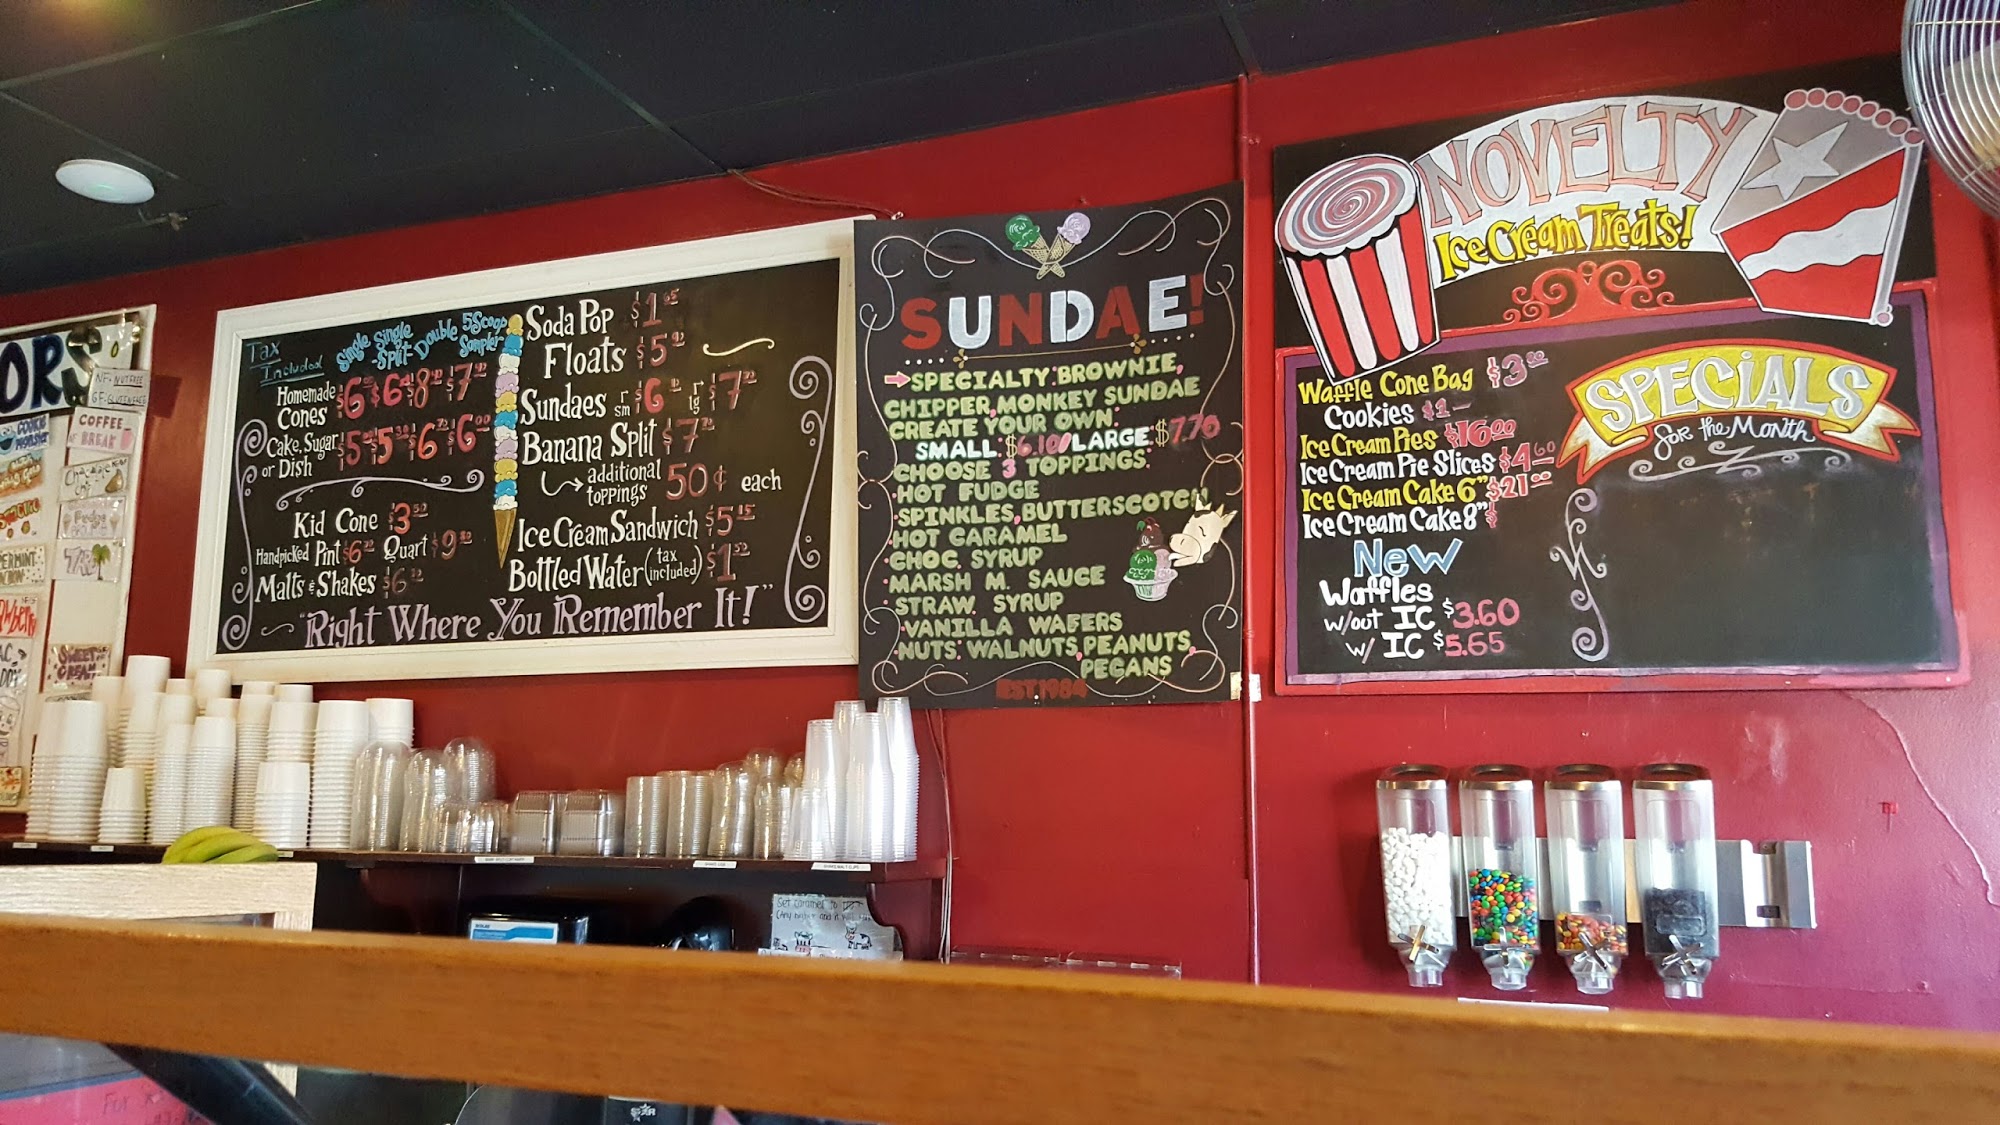 ORS
NF=NUTFREE
GF=GLUTENFREE
COFFEE
BREAK
COOKIE
MONSTER
SWEET
CREAM
Tax
Included
Single Single Split Double 5 Scoop Sampler
Homemade
Cones
Cake, Sugar
or Dish
Kid Cone $3.50
Handpicked Pint Quart
Malts & Shakes
Soda Pop
Floats
Sundaes sm $6 lg $7
Banana Split
additional
toppings 50¢ each
Ice Cream Sandwich $5.15
Bottled Water (tax included)
"Right Where You Remember It!"
SUNDAE!
SPECIALTY: BROWNIE,
CHIPPER, MONKEY SUNDAE
CREATE YOUR OWN:
SMALL: $6.10/LARGE: $7.70
CHOOSE 3 TOPPINGS:
HOT FUDGE
SPINKLES, BUTTERSCOTCH
HOT CARAMEL
CHOC. SYRUP
MARSH M. SAUCE
STRAW. SYRUP
VANILLA WAFERS
NUTS: WALNUTS, PEANUTS,
PEGANS
EST 1984
NOVELTY
Ice Cream Treats!
Waffle Cone Bag
Cookies $1-
Ice Cream Pies $16.00
Ice Cream Pie Slices $4.60
Ice Cream Cake 6" $21.00
Ice Cream Cake 8" $
New
Waffles
w/out IC $3.60
w/ IC $5.65
SPECIALS
for the Month
Set caramel to
STAR